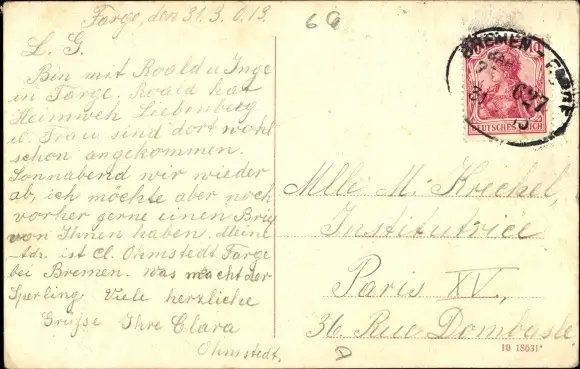 Farge, den 31.3.1913.
60
L. G.
Bin mit Roald u Inge
in Farge. Roald hat
Heimweh Liebenberg
u. Frau sind dort wohl
schon angekommen.
Sonnabend wir wieder
ab, ich möchte aber noch
vorher gerne einen Brief
von Ihnen haben. Meine
Adr. ist Cl. Ohmstedt Farge
bei Bremen. Was macht der
Sperling Viele herzliche
Grüße Ihre Clara
Ohmstedt.
BREMEN - F
627
DEUTSCHES REICH
Mlle M. Krickel,
Institutrice
Paris XV.,
36 Rue Dombasle
10 18631*